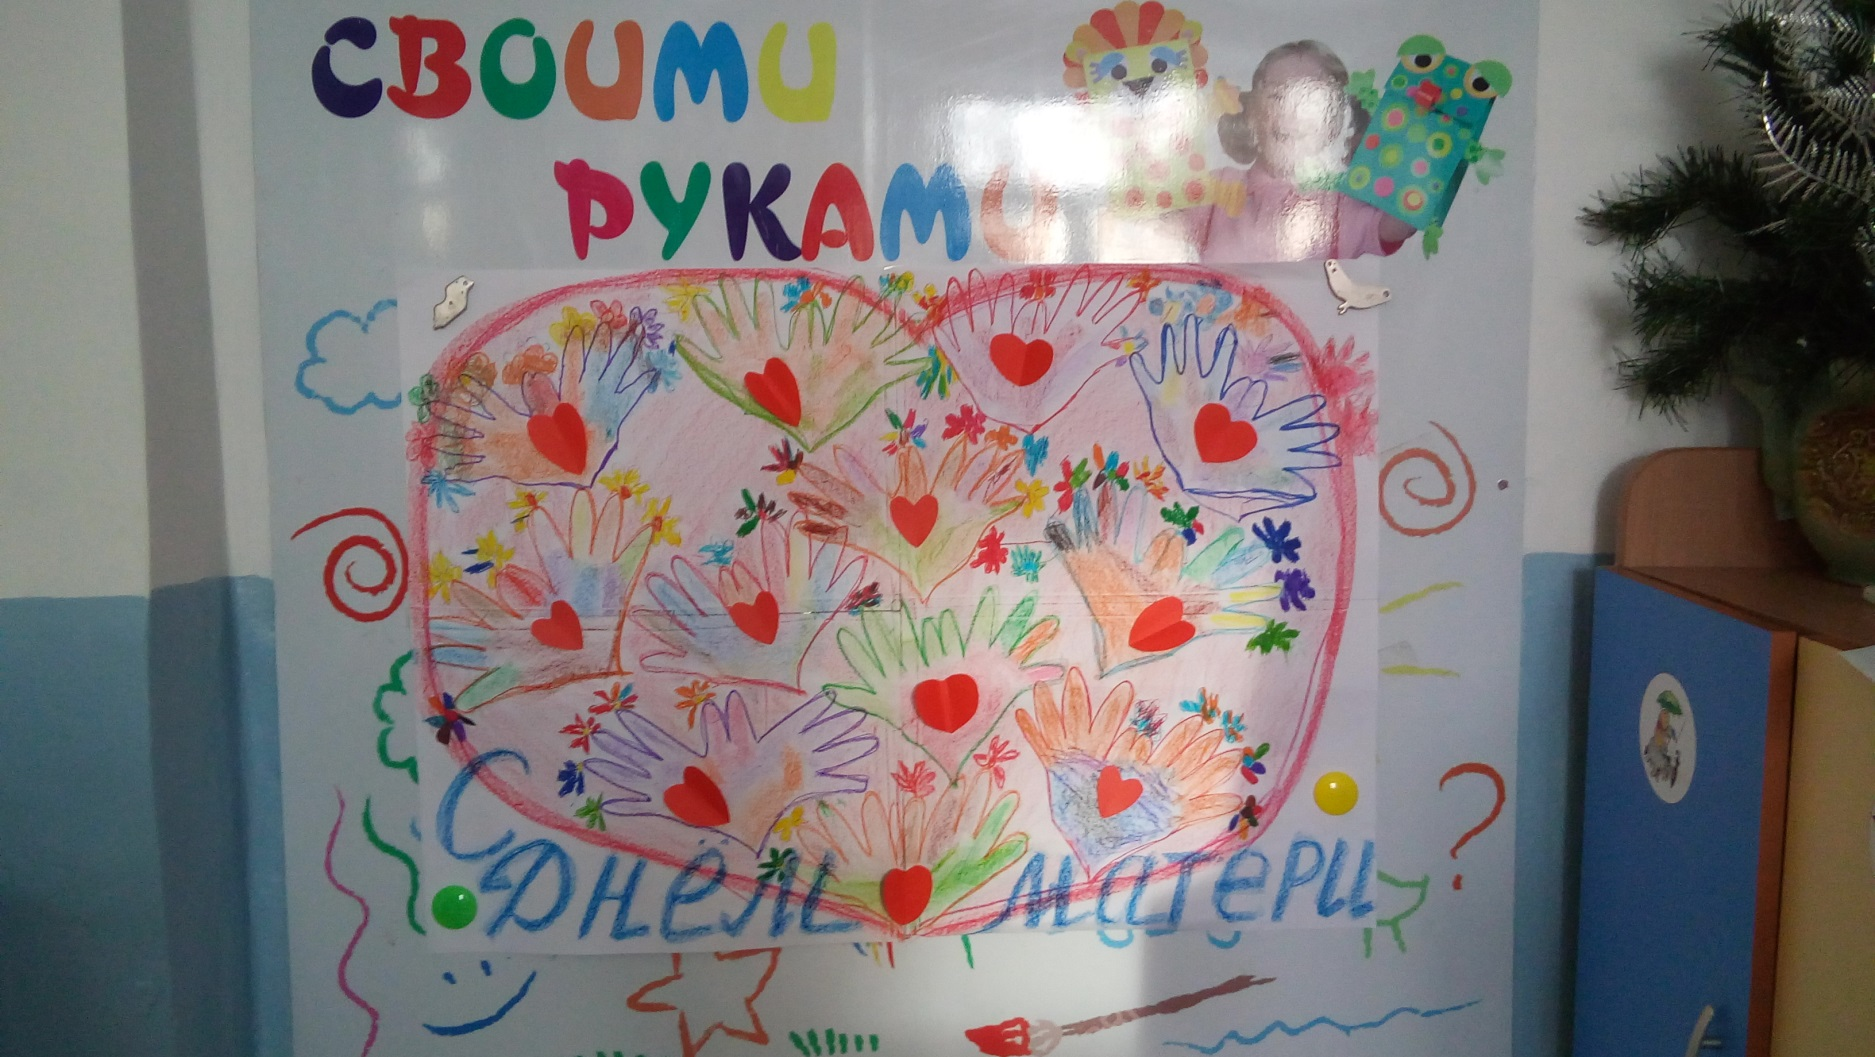 СВОИМИ
РУКАМИ
С
Днём матери